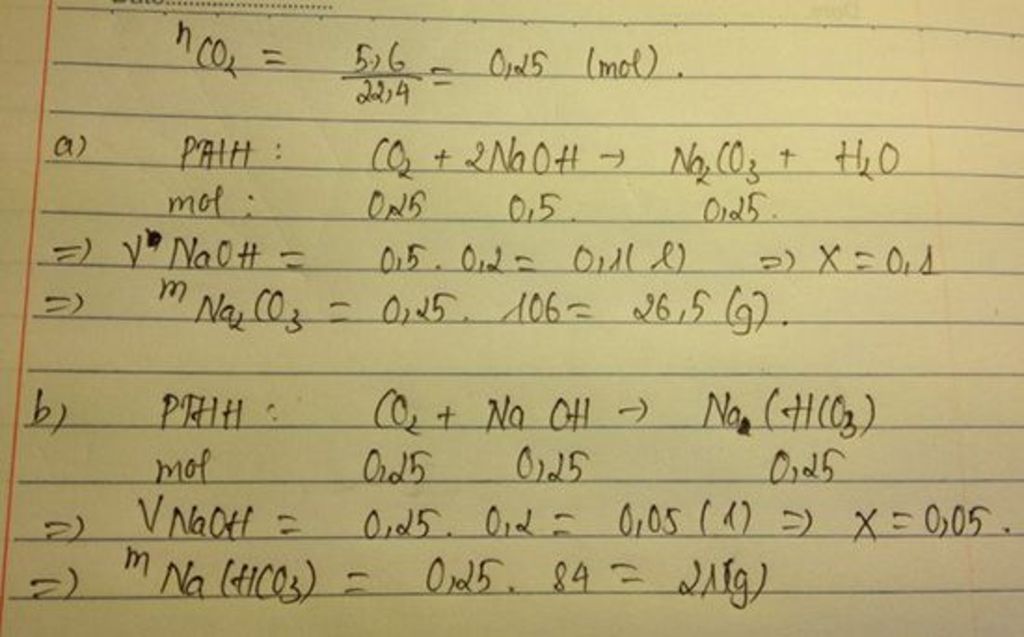 nCO₂ = 5,6/22,4 = 0,25 (mol).
a) PTHH : CO₂ + 2NaOH → Na₂CO₃ + H₂O
mol : 0,25 0,5. 0,25.
=) V NaOH = 0,5 . 0,2 = 0,1 (l) =) X = 0,1
=) m Na₂CO₃ = 0,25. 106 = 26,5 (g).
b) PTHH : CO₂ + Na OH → Na (HCO₃)
mol 0,25 0,25 0,25
=) V NaOH = 0,25. 0,2 = 0,05 (l) =) X = 0,05.
=) m Na (HCO₃) = 0,25. 84 = 21(g)